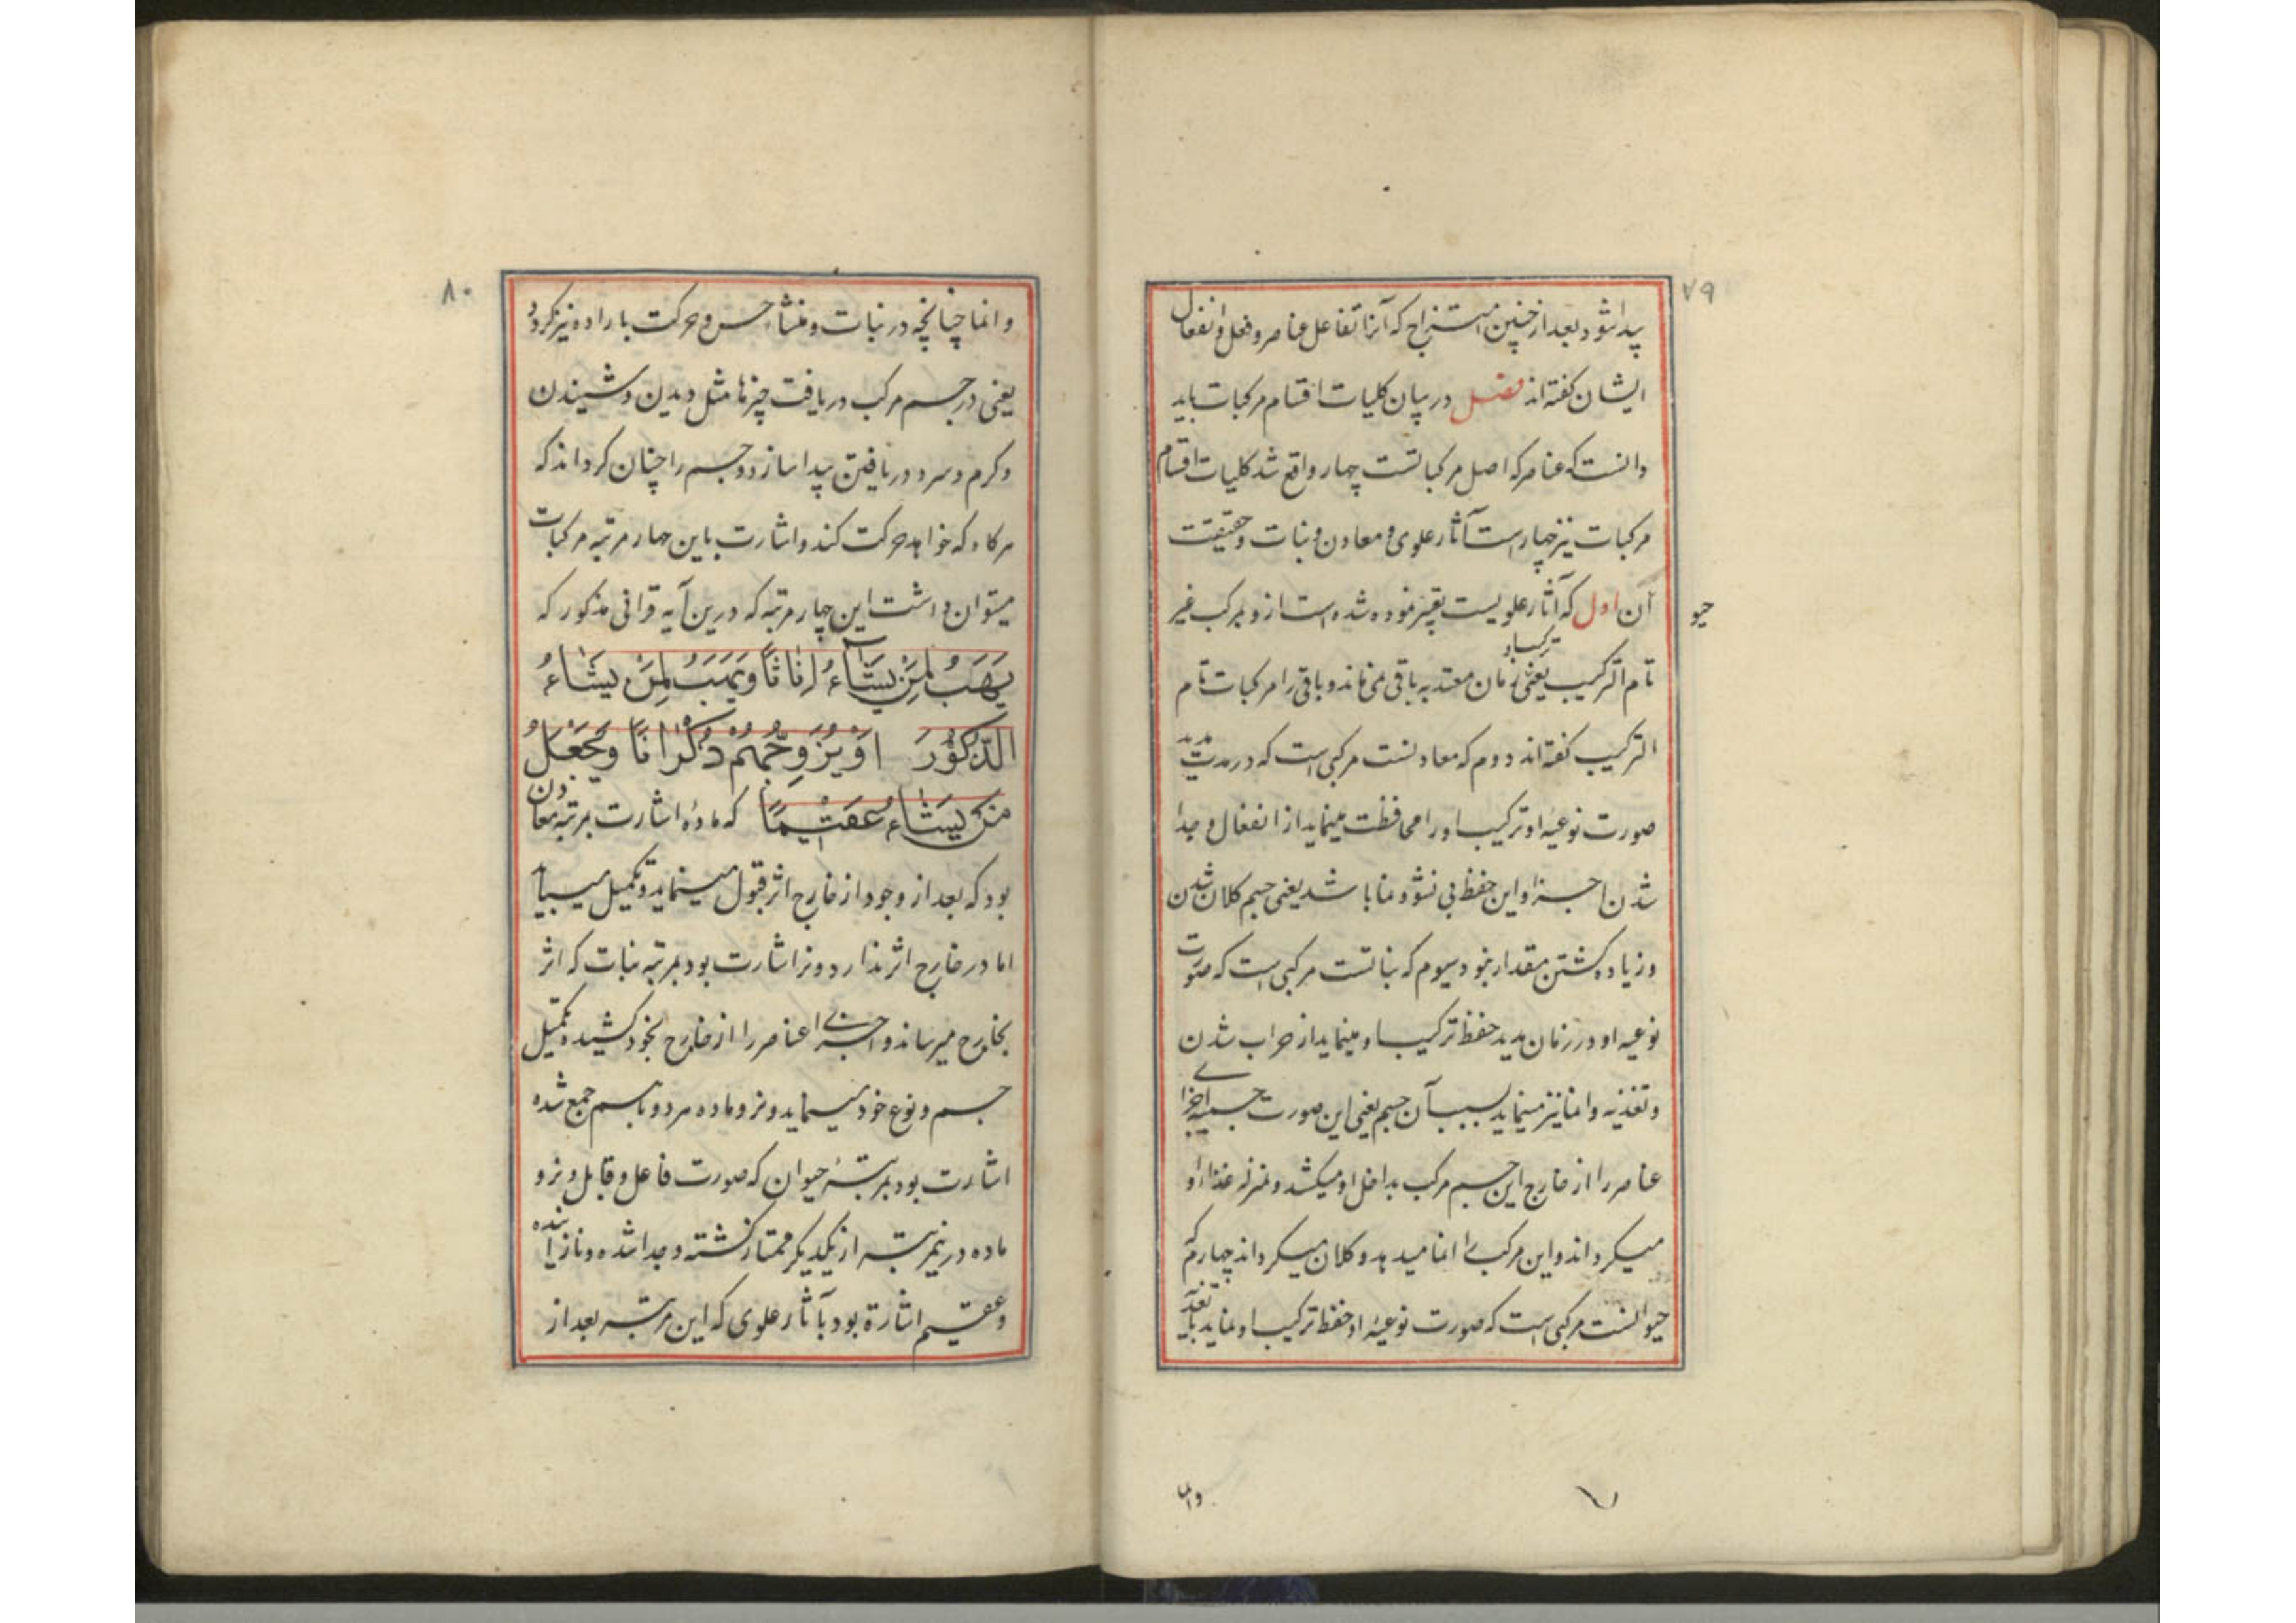 ۷۹
پیدا شود بعد از چنین امتزاج که آنرا تفاعل عناصر و فعل و انفعال
ایشان گفته‌اند فصل در بیان کلیات اقسام مرکبات باید
دانست که عناصر که اصل مرکباتست چهار واقع شد کلیات اقسام
مرکبات نیز چهار است آثار علوی و معادن و نبات و حقیقت
حیو
آن اول که آثار علویست تعبیر نموده شده است ازو بمرکب غیر
تام الترکیب یعنی ترکیب او زمان معتد به باقی نمی‌ماند و باقی را مرکبات تام
الترکیب گفته‌اند دوم که معادنست مرکبی است که در مدت مدید
صورت نوعیه او ترکیب او را محافظت مینماید از انفعال و جدا
شدن اجزا و این حفظ بی نشو و نما باشد یعنی جسم کلان شدن
و زیاده گشتن مقدار نبود سیوم که نباتست مرکبی است که صورت
نوعیه او در زمان مدید حفظ ترکیب او مینماید از خراب شدن
و تغذیه و انما نیز مینماید بسبب آن جسم یعنی این صورت جسمیه اجزای
عناصر را از خارج این جسم مرکب بداخل او میکشد و بمنزله غذا او
میگرداند و این مرکب را انما میدهد و کلان میگرداند چهارم که
حیوانست مرکبی است که صورت نوعیه او حفظ ترکیب او نماید با تغذیه
۸۰
و انما چنانچه در نبات و منشاء حس و حرکت باراده نیز گردد
یعنی در جسم مرکب دریافت چیزها مثل دیدن و شنیدن
و گرم و سرد دریافتن پیدا سازد و جسم را چنان گرداند که
هرگاه که خواهد حرکت کند و اشارت باین چهار مرتبه مرکبات
میتوان داشت این چهار مرتبه که درین آیه قرانی مذکور که
یَهَبُ لِمَنْ یَشَاءُ اِنَاثًا وَیَهَبُ لِمَنْ یَشَاءُ
الذُّکُوْرَ اَوْ یُزَوِّجُهُمْ ذُکْرَانًا وَیَجْعَلُ
مَنْ یَشَاءُ عَقِیْمًا که ماده اشارت بمرتبه معادن
بود که بعد از وجود از خارج اثر قبول مینماید و تکمیل مییابد
اما در خارج اثر ندارد و نر اشارت بود بمرتبه نبات که اثر
بخارج میرساند و اجزای عناصر را از خارج بخود کشیده تکمیل
جسم و نوع خود مینماید و نر و ماده هر دو باهم جمع شده
اشارت بود بمرتبه حیوان که صورت فاعل و قابل و نر و
ماده درینمرتبه از یکدیگر ممتاز گشته و جدا شده و نازاینده
و عقیم اشارة بود بآثار علوی که این مرتبه بعد از